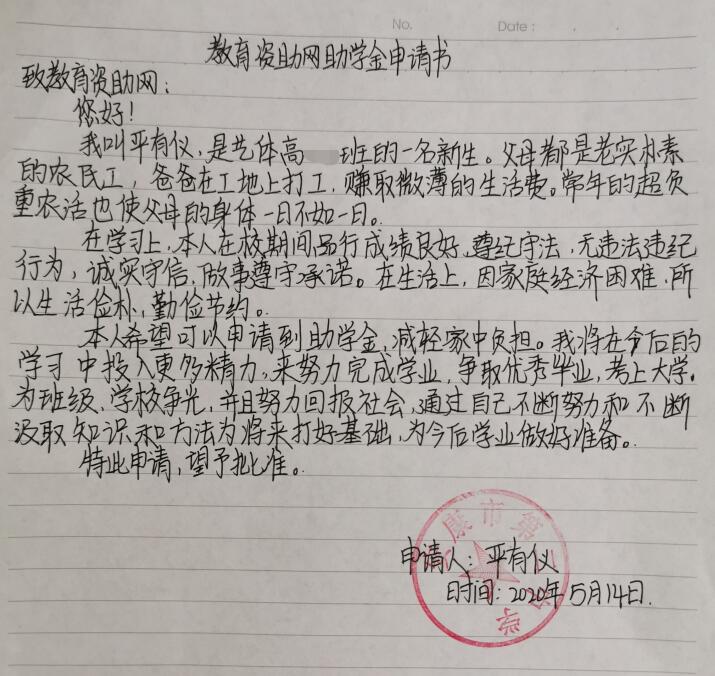 No. Date: . .
教育资助网助学金申请书
致教育资助网:
您好!
我叫平有仪,是艺体高 班的一名新生。父母都是老实朴素
的农民工,爸爸在工地上打工,赚取微薄的生活费。常年的超负
重农活也使父母的身体一日不如一日。
在学习上,本人在校期间品行成绩良好、尊纪守法,无违法违纪
行为,诚实守信,做事遵守承诺。在生活上,因家庭经济困难,所
以生活俭朴,勤俭节约。
本人希望可以申请到助学金,减轻家中负担。我将在今后的
学习中投入更多精力,来努力完成学业,争取优秀毕业,考上大学。
为班级、学校争光,并且努力回报社会,通过自己不断努力和不断
汲取知识和方法为将来打好基础,为今后学业做好准备。
特此申请,望予批准。
康市第 学
申请人:平有仪
时间:2020年5月14日.